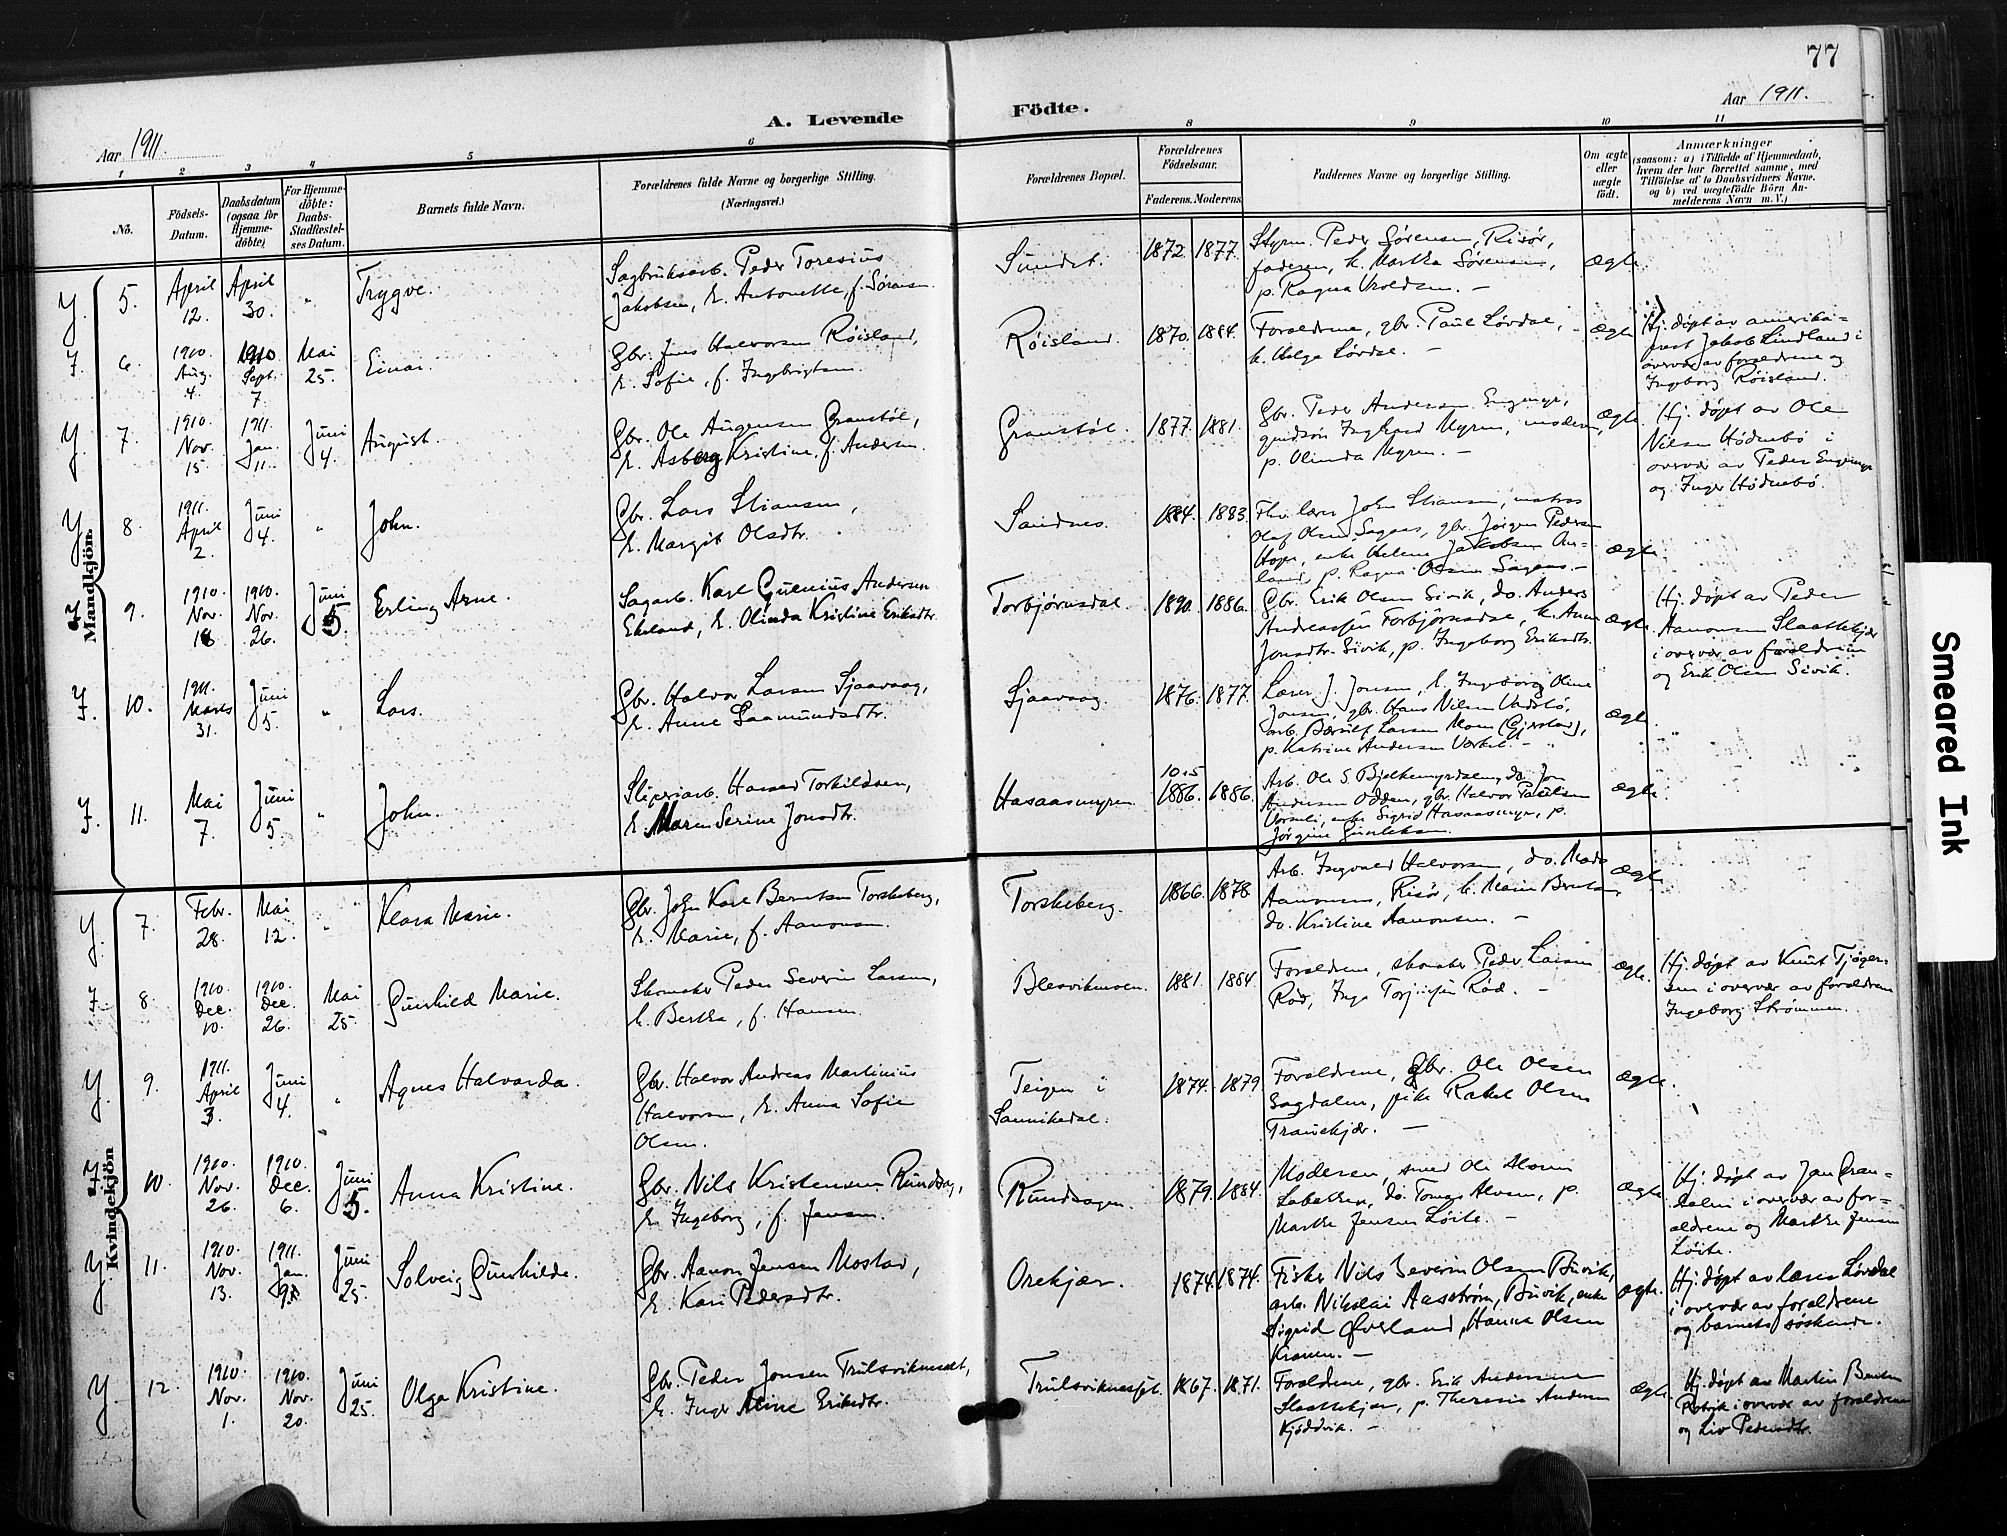 77
Aar 1911.
A. Levende
Födte.
Aar 1911.
1 2 3 4 5 6 8 9 10 11
No.
Födsels-
Datum.
Daabsdatum
(ogsaa for
Hjemme-
döbte)
For Hjemme-
döbte:
Daabs-
Stadfæstel-
ses Datum.
Barnets fulde Navn.
Forældrenes fulde Navne og borgerlige Stilling.
(Næringsvei.)
Forældrenes Bopæl.
Forældrenes
Födselsaar.
Faderens. Moderens.
Faddernes Navne og borgerlige Stilling.
Om ægte
eller
uægte
födt.
Anmærkninger
(saasom: a) i Tilfælde af Hjemmedaab,
hvem der har forrettet samme, med
Tilföielse af to Daabsvidners Navne.
og b) ved uægtefödte Börn An-
melderens Navn m. V.)
Mandkjön.
Y. 5. April
12.
April
30.
"
Trygve.
Sagbruksarb. Peder Toresius
Jakobsen, h. Antonette, f. Sørensen
Sundet.
1872. 1877.
Styrm. Peder Sørensen, Risør,
faderen, k. Martha Sørensen,
p. Ragna Vroldsen. —
Ægte.
F. 6. 1910.
Aug.
4.
1910
Sept.
7
Mai
25.
Einar.
Gbr. Jens Halvorsen Røisland,
h. Sofie, f. Ingebrigtsen.
Røisland.
1870. 1884.
Forældrene, gbr. Paul Løvdal,
k. Helga Løvdal. —
Ægte
Hj. døpt av amerika-
prest Jakob Lindland i
overvær av forældrene og
Ingeborg Røisland.
Y. 7. 1910.
Nov.
15.
1911.
Jan.
11.
Juni
4.
August.
Gbr. Ole Augensen Granstøl,
h. Asberg Kristine, f. Andersen.
Granstøl.
1877. 1881.
Gbr. Peder Andersen Engemyr,
Myren, moderen,
p. Olinda Myren. —
Ægte.
Hj. døpt av Ole
Nilsen Hødnebø i
overvær av Peder Engemyr
og Inger Hødnebø.
Y. 8. 1911.
April
2.
Juni
4.
"
John.
Gbr. Lars Stiansen,
h. Margit Olsdtr.
Sandnes.
1884. 1883.
Fhv. lærer John Stiansen, matros
Olaf Olsen Sagaas, gbr. Jørgen Pedersen
enke Helene Jakobsen
p. Ragna Olsen Sagaas. —
Ægte.
F. 9. 1910.
Nov.
18
1910.
Nov.
26.
Juni
5.
Erling Arne.
Sagarb. Karl Gunerius Andersen
Ekeland, h. Olinda Kristine Eriksdtr.
Torbjørnsdal.
1890. 1886.
Gbr. Erik Olsen Sivik, do. Anders
Andreassen Torbjørnsdal, k. Anne
Jonsdtr. Sivik, p. Ingeborg Eriksdtr.
Ægte.
Hj. døpt av Peder
Aanonsen Slaattekjær
i overvær av forældrene
og Erik Olsen Sivik.
F. 10. 1911.
Marts
31.
Juni
5.
"
Lars.
Gbr. Halvor Larsen Sjaavaag,
h. Anne Gaamundsdtr.
Sjaavaag
1876. 1877.
Lærer J. Jonsen, h. Ingeborg Oline
Jonsen, gbr. Hans Nilsen
arb. Larsen Moen (Gjerstad),
p. Katrine Andersen —
Ægte.
F. 11. Mai
7.
Juni
5.
"
John.
Sliperiarb. Harald Torkildsen,
h. Maren Serine Jonsdtr.
Hasaasmyren.
10/5
1886. 1886.
Arb. Ole S. Bjelkemyrdalen, do. Jon
Andersen Odden, gbr. Halvor Paulsen
enke Sigrid Hasaasmyr, p.
Jørgine Gunleksen.
Ægte.
Kvindekjön
Y. 7. Febr.
28.
Mai
12.
"
Klara Marie.
Gbr. John Karl Berntsen Torskeberg,
h. Marie, f. Aanonsen.
Torskeberg.
1866. 1878
Arb. Ingvald Halvorsen, do. Mads
Aanonsen, Risør, k. Marie Berntsen,
do. Kristine Aanonsen. —
Ægte.
F. 8. 1910.
Dec.
10.
1910.
Dec.
26.
Mai
25.
Gunhild Marie.
Skomaker Peder Severin Larsen,
h. Bertha, f. Hansen.
Blesvikmoen.
1881. 1884.
Forældrene, skomaker Peder Larsen
Rød, Inga Torjussen Rød. —
Ægte.
Hj. døpt av Knut Tjøger-
sen i overvær av forældrene
Ingeborg Strømmen.
Y. 9. 1911.
April
3.
Juni
4.
"
Agnes Halvarda.
Gbr. Halvor Andreas Martinius
Halvorsen, h. Anna Sofie
Olsen.
Teigen i
Sannikedal.
1874. 1879.
Forældrene, gbr. Ole Olsen
Sagdalen, pike Rakel Olsen
Tranekjær. —
Ægte.
Y. 10. 1910.
Nov.
26.
1910.
Dec.
6.
Juni
5.
Anna Kristine.
Gbr. Nils Kristensen Rundsag,
h. Ingeborg, f. Jensen.
Rundsagen.
1879. 1884.
Moderen, smed Ole Moren
do. Tomas Alvsen, p.
Marthe Jensen Løite. —
Ægte.
Hj. døpt av Jan Gran-
dalen i overvær av for-
ældrene og Marthe Jensen
Løite.
Y. 11. 1910
Nov.
13.
1911.
Jan.
Juni
25.
Solveig Gunhilde.
Gbr. Aanon Jensen Mostad,
h. Kari Pedersdtr.
Orekjær.
1874. 1874.
Fisker Nils Severin Olsen Buvik,
arb. Nikolai Aasstrøm, Buvik, enke
Sigrid Øverland, Hanna Olsen
Kranen. —
Ægte.
Hj. døpt av lærer Løvdal
i overvær av forældrene
og barnets søskende.
Y. 12. 1910
Nov.
1.
1910.
Nov.
20.
Juni
25.
Olga Kristine.
Gbr. Peder Jonsen Trulsviknesset,
h. Inger Aline Eriksdtr.
Trulsviknesset.
1867. 1871.
Forældrene, gbr. Erik Andersen
Slaattekjær, p. Theresie Andersen
Kjøddvik. —
Ægte.
Hj. døpt av Martin Berntsen
i overvær av forældrene
og Liv Pedersdtr.
Smeared Ink